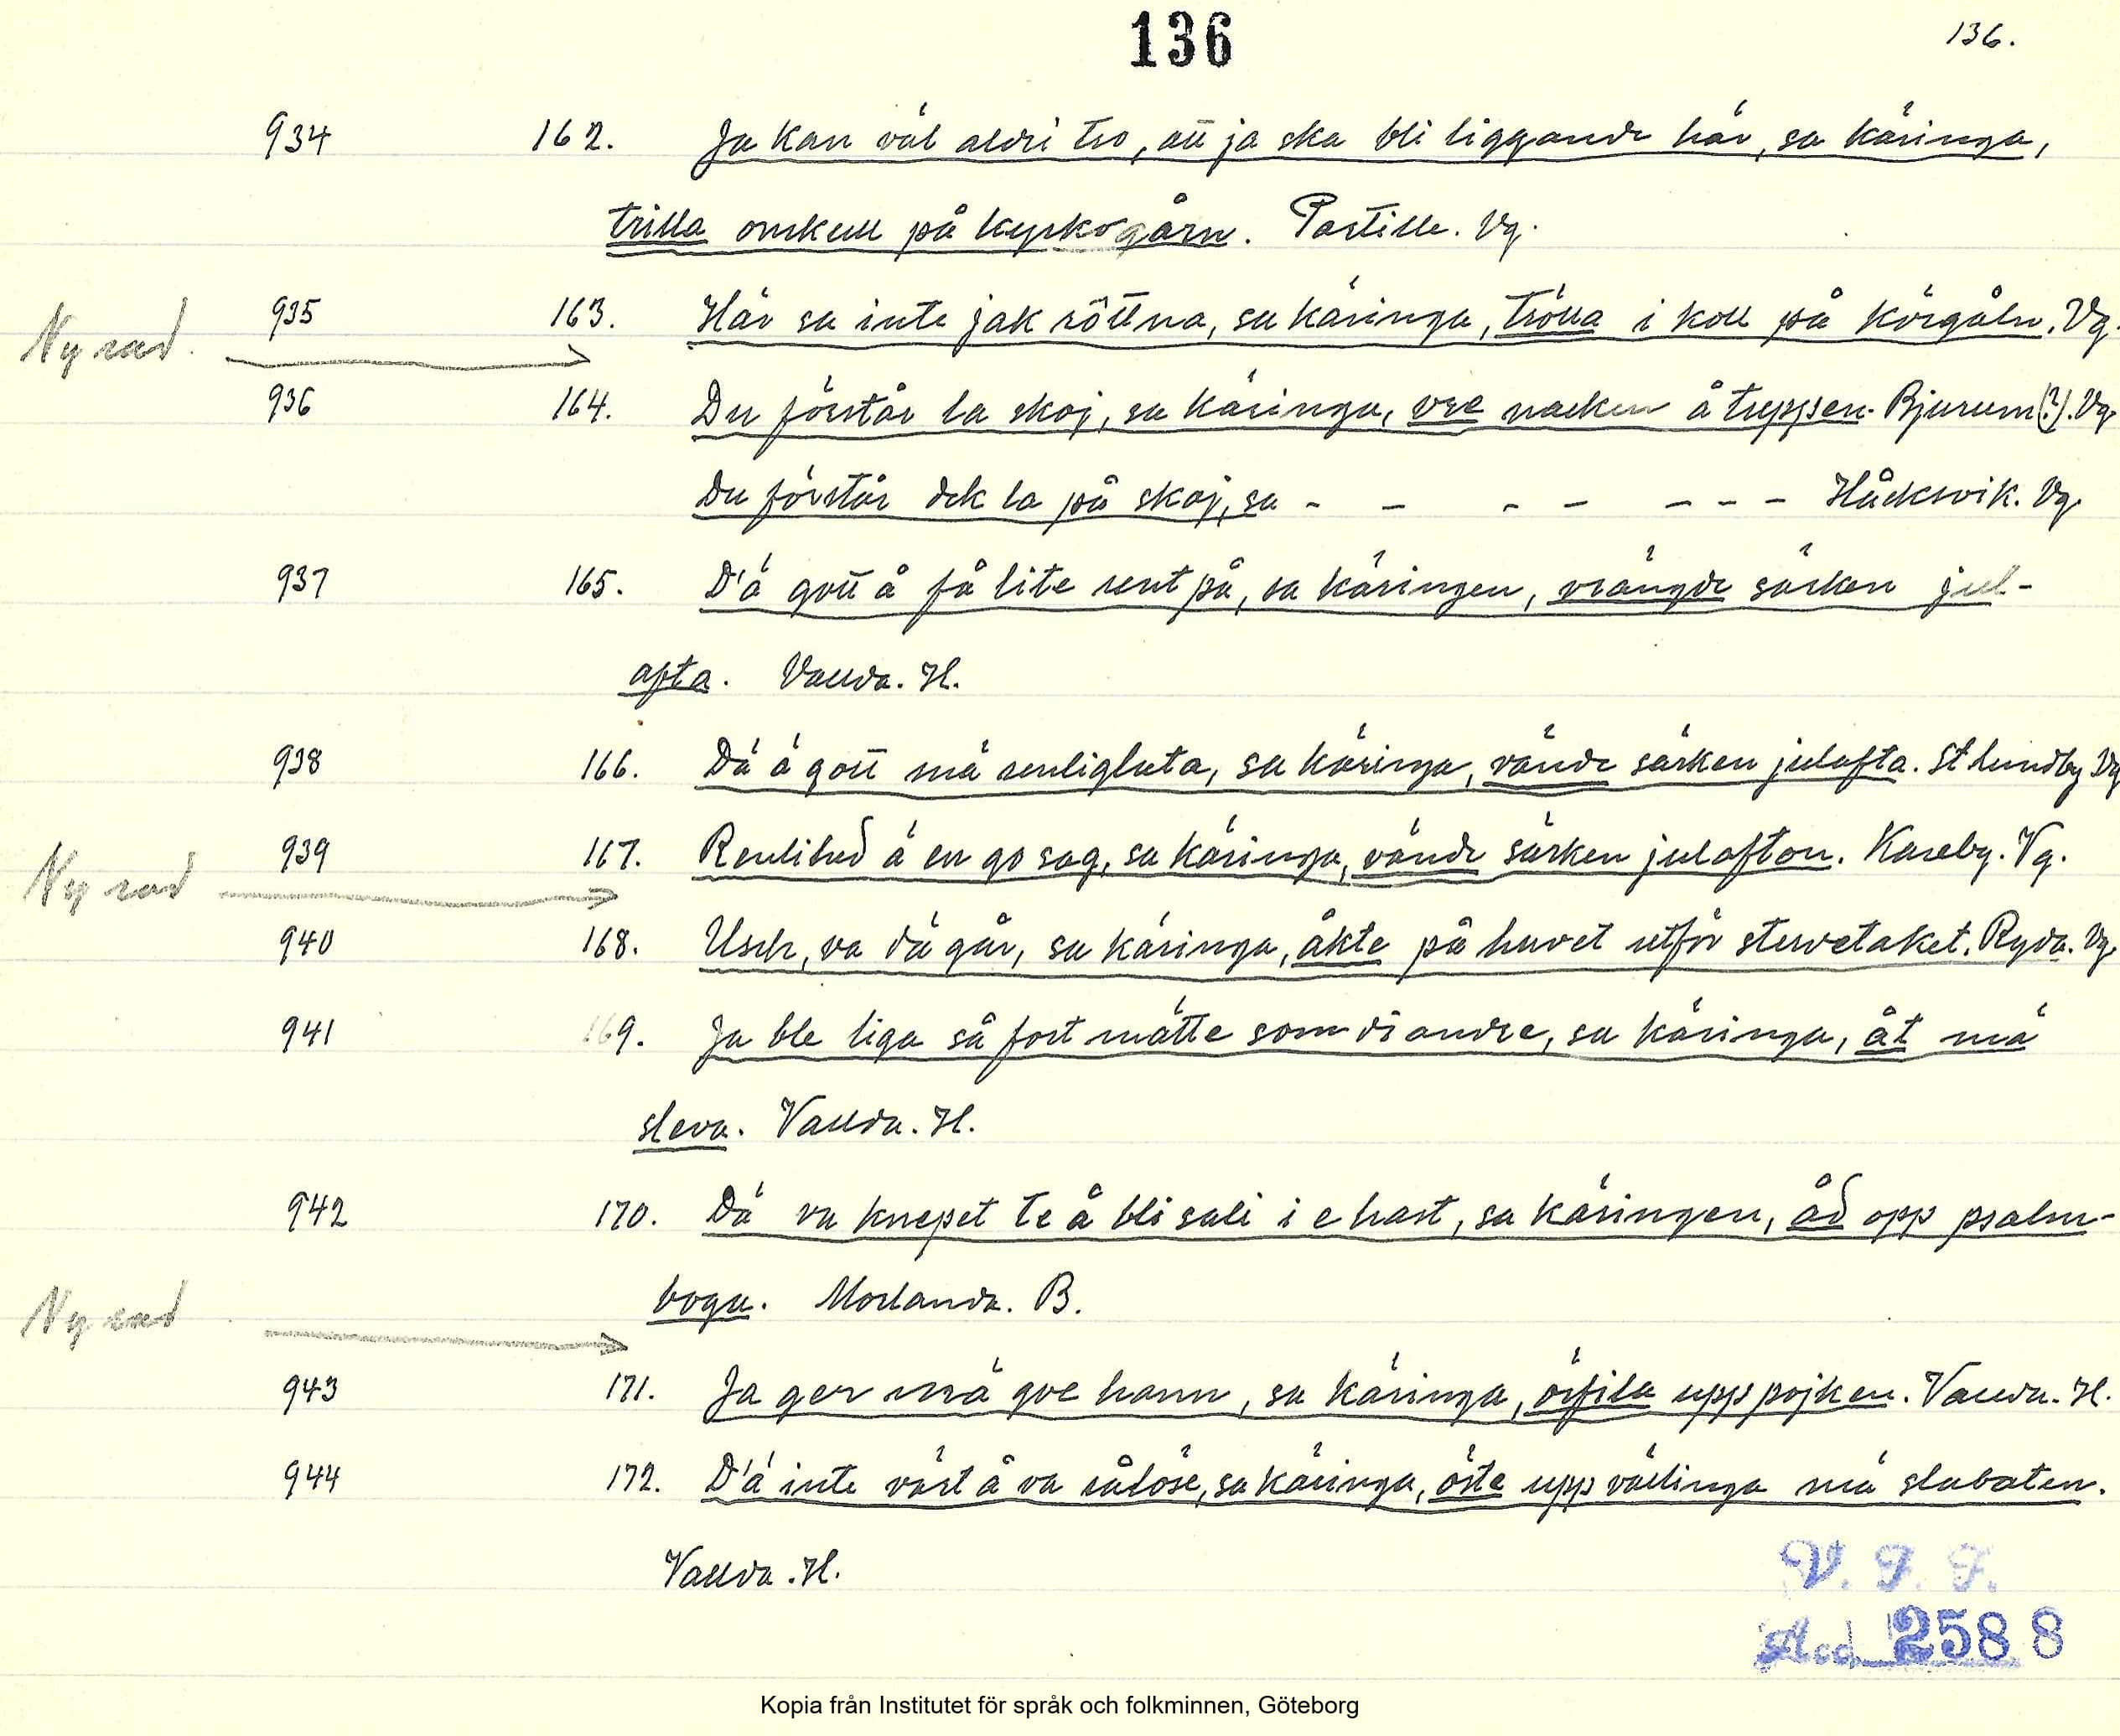 136
136.
934 162. Ja kan väl aldri tro, att ja ska bli liggande här, sa käringa,
trilla omkull på kyrkogårn. Partille. Vg.
935 163. Här sa inte jak röttna, sa käringa, trölla i koll på körgåln. Vg.
Ny rad
936 164. Du förstår la skoj, sa käringa, vre nacken å tuppen. Bjurum (?). Vg
Du förstår dek la på skoj, sa - - - - - - - Håcksvik. Vg
937 165. D'ä gott å få lite rent på, sa käringen, vrängde särken jul-
afta. Vallda. H.
938 166. Dä ä gott mä renligheta, sa käringa, vände särken julafta. St Lundby Vg
939 167. Renlihed ä en go sag, sa käringa, vände särken julafton. Kareby. Vg.
Ny rad
940 168. Usch, va dä går, sa käringa, åkte på huvet utför stuvetaket. Ryda. Vg
941 169. Ja ble liga så fort mätte som di andre, sa käringa, åt mä
sleva. Vallda. H.
942 170. Dä va knepet te å bli sali i e hast, sa käringen, åd opp psalm-
boga. Morlanda. B.
Ny rad
943 171. Ja ger mä goe hann, sa käringa, örfila upp pojken. Vallda. H.
944 172. D'ä inte värt å va rålöse, sa käringa, öste upp vällinga mä slabaten.
Vallda. H.
V. F. F.
Acc. 2588
Kopia från Institutet för språk och folkminnen, Göteborg